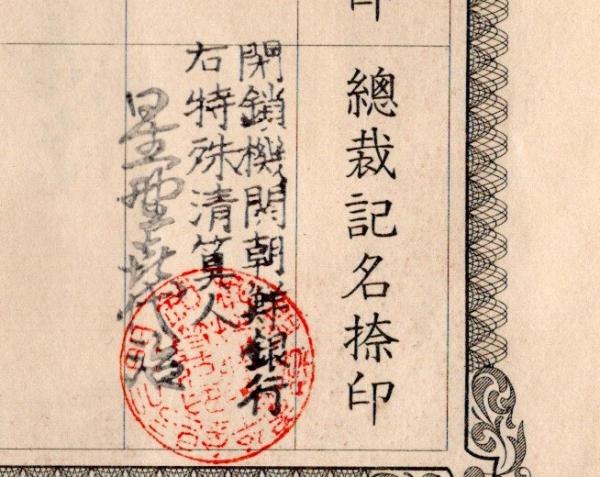 印
總裁記名捺印
閉鎖機関朝鮮銀行
右特殊清算人
星野喜代治